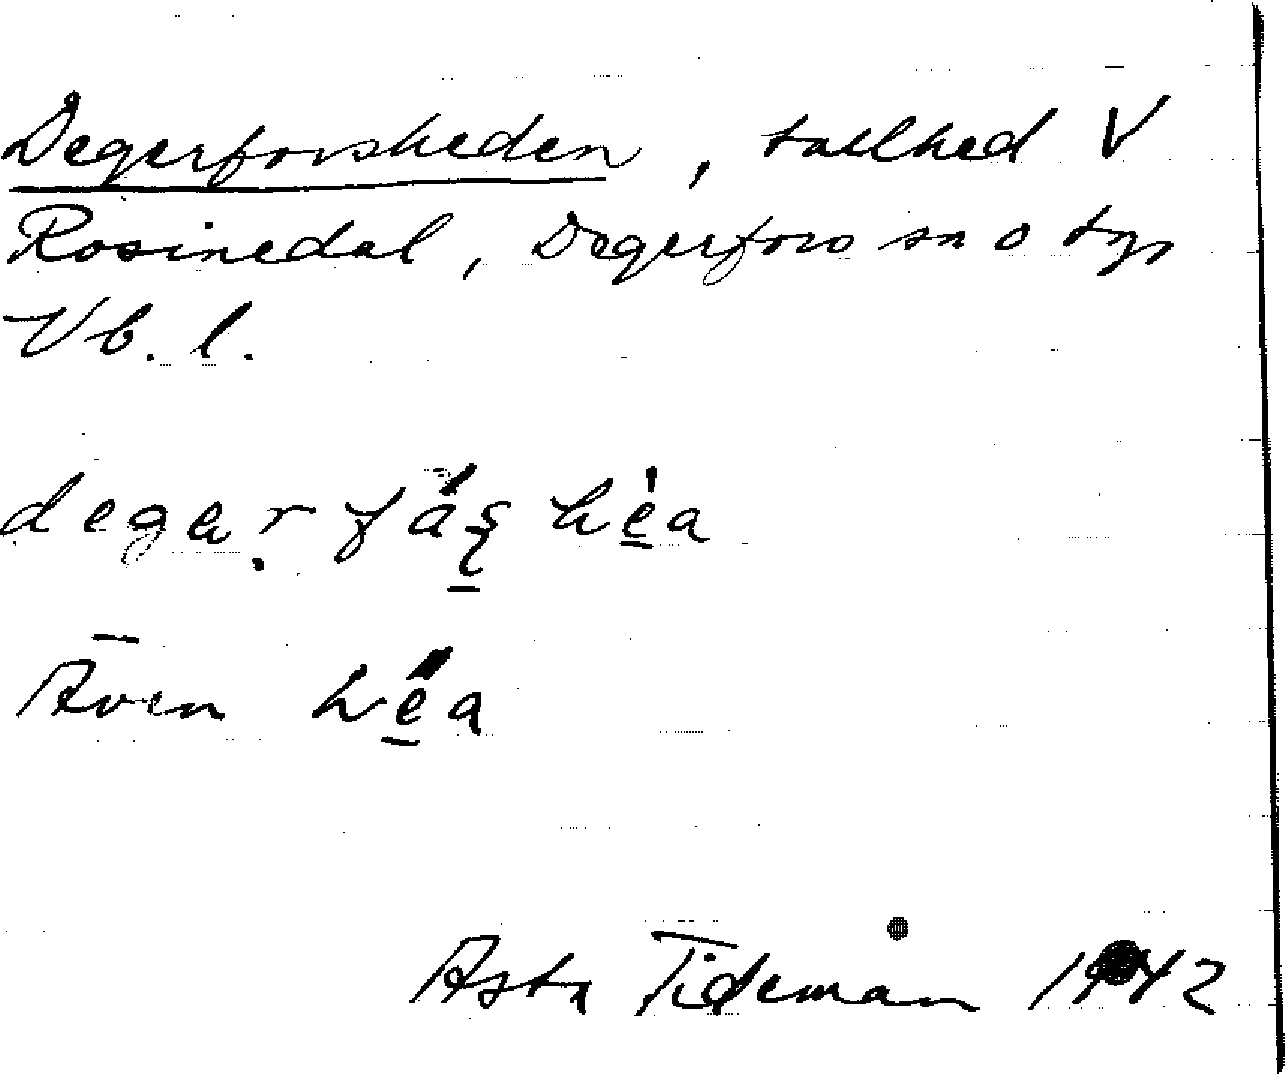 Degerforsheden, tallhed V
Rosinedal, Degerfors sn o tg,
Vb. l.
degerfås hèa
Även héa
Asta Tideman 1942